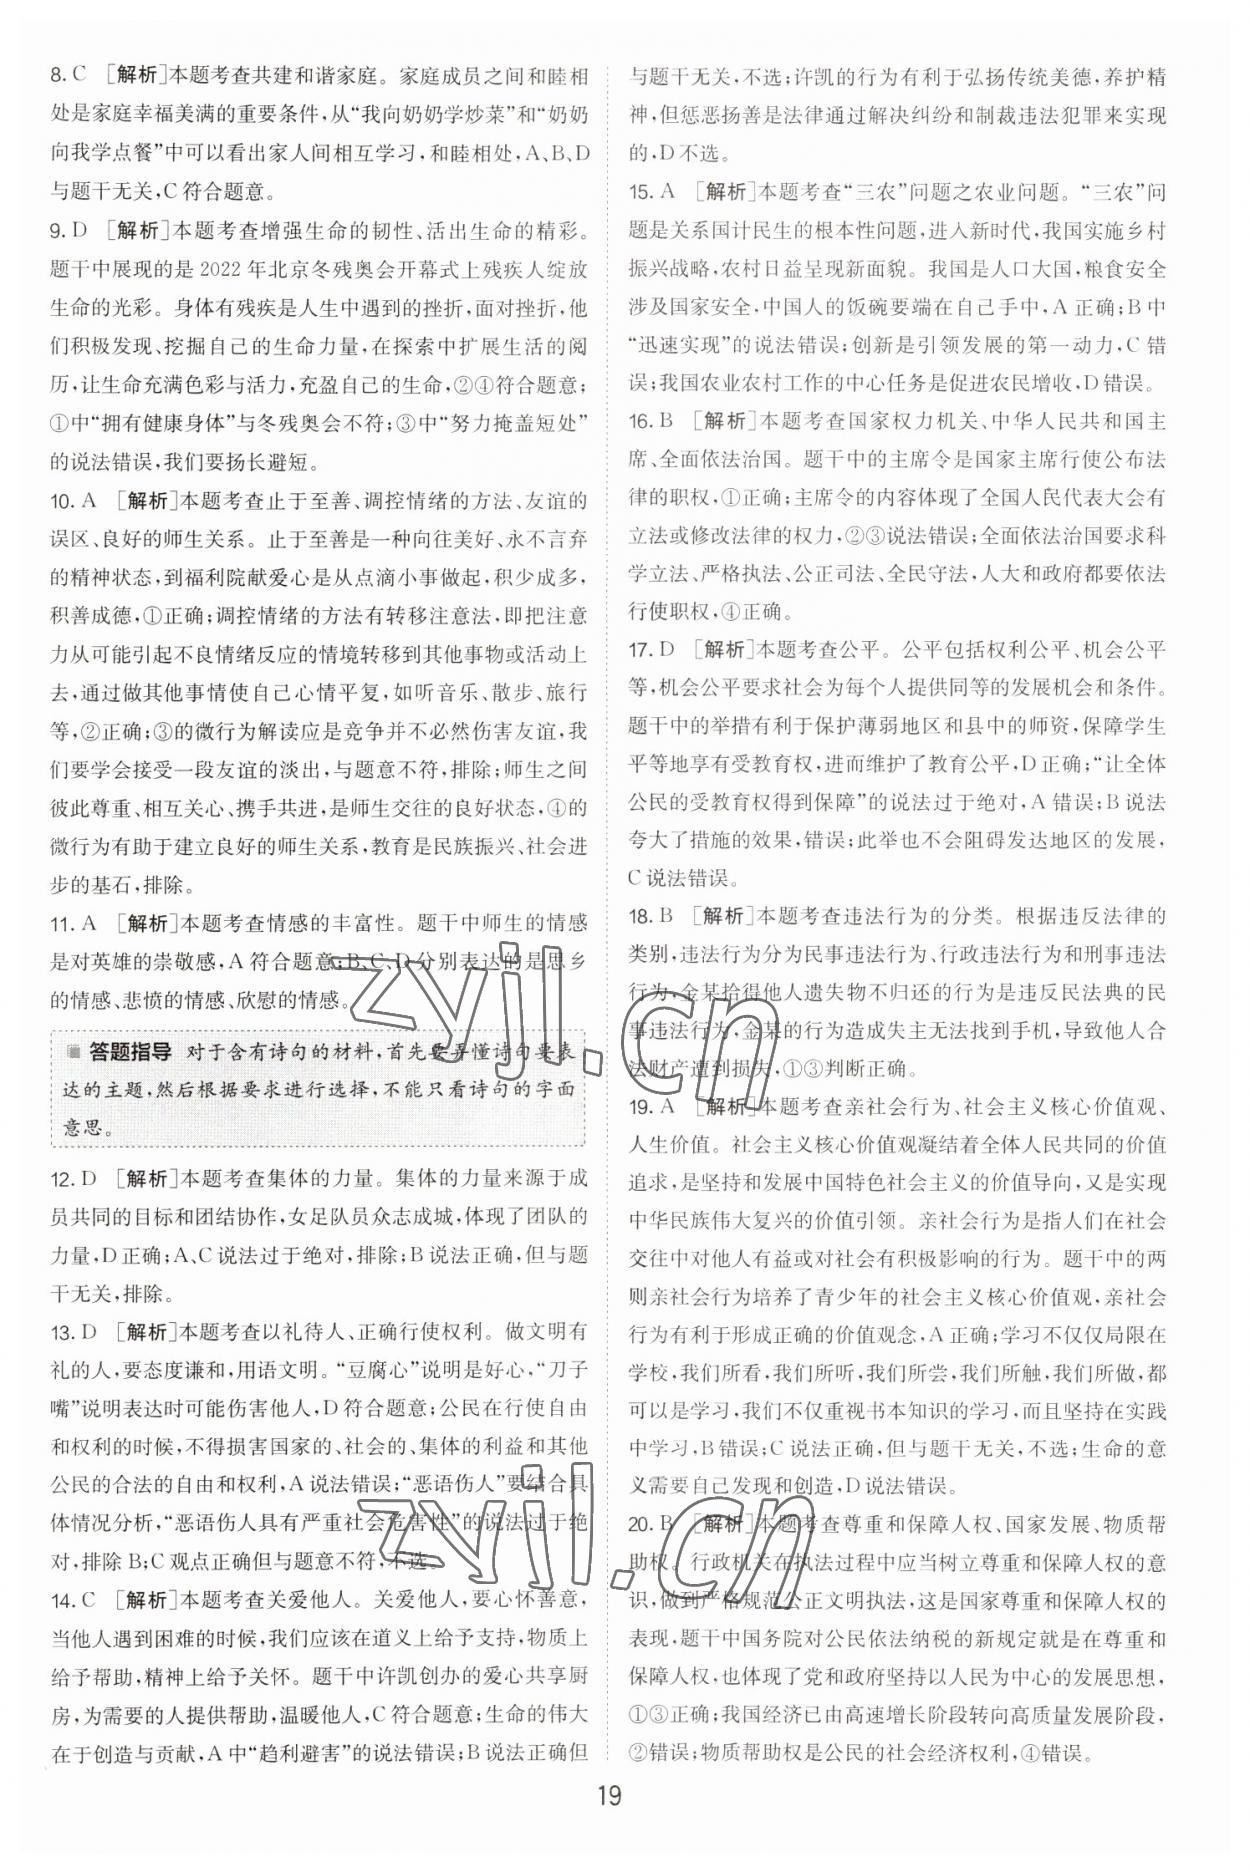 8. C [解析]本题考查共建和谐家庭。家庭成员之间和睦相
处是家庭幸福美满的重要条件,从“我向奶奶学炒菜”和“奶奶
向我学点餐”中可以看出家人间相互学习,和睦相处,A、B、D
与题干无关,C符合题意。
9. D [解析]本题考查增强生命的韧性、活出生命的精彩。
题干中展现的是2022年北京冬残奥会开幕式上残疾人绽放
生命的光彩。身体有残疾是人生中遇到的挫折,面对挫折,他
们积极发现、挖掘自己的生命力量,在探索中扩展生活的阅
历,让生命充满色彩与活力,充盈自己的生命,②④符合题意;
①中“拥有健康身体”与冬残奥会不符;③中“努力掩盖短处”
的说法错误,我们要扬长避短。
10. A [解析]本题考查止于至善、调控情绪的方法、友谊的
误区、良好的师生关系。止于至善是一种向往美好、永不言弃
的精神状态,到福利院献爱心是从点滴小事做起,积少成多,
积善成德,①正确;调控情绪的方法有转移注意法,即把注意
力从可能引起不良情绪反应的情境转移到其他事物或活动上
去,通过做其他事情使自己心情平复,如听音乐、散步、旅行
等,②正确;③的微行为解读应是竞争并不必然伤害友谊,我
们要学会接受一段友谊的淡出,与题意不符,排除;师生之间
彼此尊重、相互关心、携手共进,是师生交往的良好状态,④的
微行为有助于建立良好的师生关系,教育是民族振兴、社会进
步的基石,排除。
11. A [解析]本题考查情感的丰富性。题干中师生的情感
是对英雄的崇敬感,A符合题意;B、C、D分别表达的是思乡
的情感、悲愤的情感、欣慰的情感。
答题指导 对于含有诗句的材料,首先要弄懂诗句要表
达的主题,然后根据要求进行选择,不能只看诗句的字面
意思。
12. D [解析]本题考查集体的力量。集体的力量来源于成
员共同的目标和团结协作,女足队员众志成城,体现了团队的
力量,D正确;A、C说法过于绝对,排除;B说法正确,但与题
干无关,排除。
13. D [解析]本题考查以礼待人、正确行使权利。做文明有
礼的人,要态度谦和,用语文明。“豆腐心”说明是好心,“刀子
嘴”说明表达时可能伤害他人,D符合题意;公民在行使自由
和权利的时候,不得损害国家的、社会的、集体的利益和其他
公民的合法的自由和权利,A说法错误;“恶语伤人”要结合具
体情况分析,“恶语伤人具有严重社会危害性”的说法过于绝
对,排除B;C观点正确但与题意不符,不选。
14. C [解析]本题考查关爱他人。关爱他人,要心怀善意,
当他人遇到困难的时候,我们应该在道义上给予支持,物质上
给予帮助,精神上给予关怀。题干中许凯创办的爱心共享厨
房,为需要的人提供帮助,温暖他人,C符合题意;生命的伟大
在于创造与贡献,A中“趋利避害”的说法错误;B说法正确但
与题干无关,不选;许凯的行为有利于弘扬传统美德,养护精
神,但惩恶扬善是法律通过解决纠纷和制裁违法犯罪来实现
的,D不选。
15. A [解析]本题考查“三农”问题之农业问题。“三农”问
题是关系国计民生的根本性问题,进入新时代,我国实施乡村
振兴战略,农村日益呈现新面貌。我国是人口大国,粮食安全
涉及国家安全,中国人的饭碗要端在自己手中,A正确;B中
“迅速实现”的说法错误;创新是引领发展的第一动力,C错
误;我国农业农村工作的中心任务是促进农民增收,D错误。
16. B [解析]本题考查国家权力机关、中华人民共和国主
席、全面依法治国。题干中的主席令是国家主席行使公布法
律的职权,①正确;主席令的内容体现了全国人民代表大会有
立法或修改法律的权力,②③说法错误;全面依法治国要求科
学立法、严格执法、公正司法、全民守法,人大和政府都要依法
行使职权,④正确。
17. D [解析]本题考查公平。公平包括权利公平、机会公平
等,机会公平要求社会为每个人提供同等的发展机会和条件。
题干中的举措有利于保护薄弱地区和县中的师资,保障学生
平等地享有受教育权,进而维护了教育公平,D正确;“让全体
公民的受教育权得到保障”的说法过于绝对,A错误;B说法
夸大了措施的效果,错误;此举也不会阻碍发达地区的发展,
C说法错误。
18. B [解析]本题考查违法行为的分类。根据违反法律的
类别,违法行为分为民事违法行为、行政违法行为和刑事违法
行为,金某拾得他人遗失物不归还的行为是违反民法典的民
事违法行为,金某的行为造成失主无法找到手机,导致他人合
法财产遭到损失,①③判断正确。
19. A [解析]本题考查亲社会行为、社会主义核心价值观、
人生价值。社会主义核心价值观凝结着全体人民共同的价值
追求,是坚持和发展中国特色社会主义的价值导向,又是实现
中华民族伟大复兴的价值引领。亲社会行为是指人们在社会
交往中对他人有益或对社会有积极影响的行为。题干中的两
则亲社会行为培养了青少年的社会主义核心价值观,亲社会
行为有利于形成正确的价值观念,A正确;学习不仅仅局限在
学校,我们所看,我们所听,我们所尝,我们所触,我们所做,都
可以是学习,我们不仅重视书本知识的学习,而且坚持在实践
中学习,B错误;C说法正确,但与题干无关,不选;生命的意
义需要自己发现和创造,D说法错误。
20. B [解析]本题考查尊重和保障人权、国家发展、物质帮
助权。行政机关在执法过程中应当树立尊重和保障人权的意
识,做到严格规范公正文明执法,这是国家尊重和保障人权的
表现,题干中国务院对公民依法纳税的新规定就是在尊重和
保障人权,也体现了党和政府坚持以人民为中心的发展思想,
①③正确;我国经济已由高速增长阶段转向高质量发展阶段,
②错误;物质帮助权是公民的社会经济权利,④错误。
19
zyjl.cn
zyjl.cn